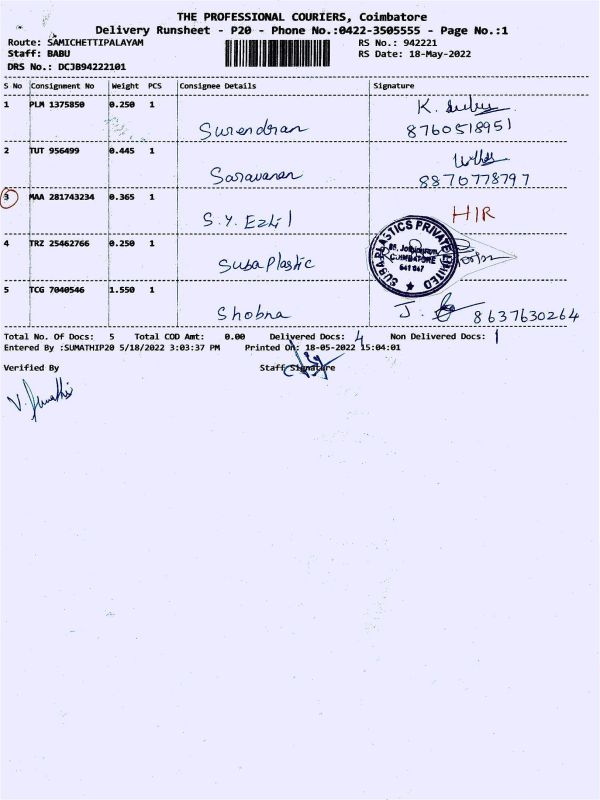 THE PROFESSIONAL COURIERS, Coimbatore
Delivery Runsheet - P20 - Phone No.:0422-3505555 - Page No.:1
Route: SAMICHETTIPALAYAM RS No.: 942221
Staff: BABU RS Date: 18-May-2022
DRS No.: DCJB94222101
S No Consignment No Weight PCS Consignee Details Signature
1 PLM 1375850 0.250 1 K.
Surendran 8760518951
2 TUT 956499 0.445 1
Saravanan 8870778797
3 MAA 281743234 0.365 1 HIR
S.Y. Ezhil
4 TRZ 25462766 0.250 1 SUBA PLASTICS PRIVATE LIMITED
COIMBATORE
Suba Plastic 641 047
5 TCG 7040546 1.550 1 J.
Shobna 8637630264
Total No. Of Docs: 5 Total COD Amt: 0.00 Delivered Docs: 4 Non Delivered Docs: 1
Entered By :SUMATHIP20 5/18/2022 3:03:37 PM Printed On: 18-05-2022 15:04:01
Verified By Staff Signature
V. Sumathi